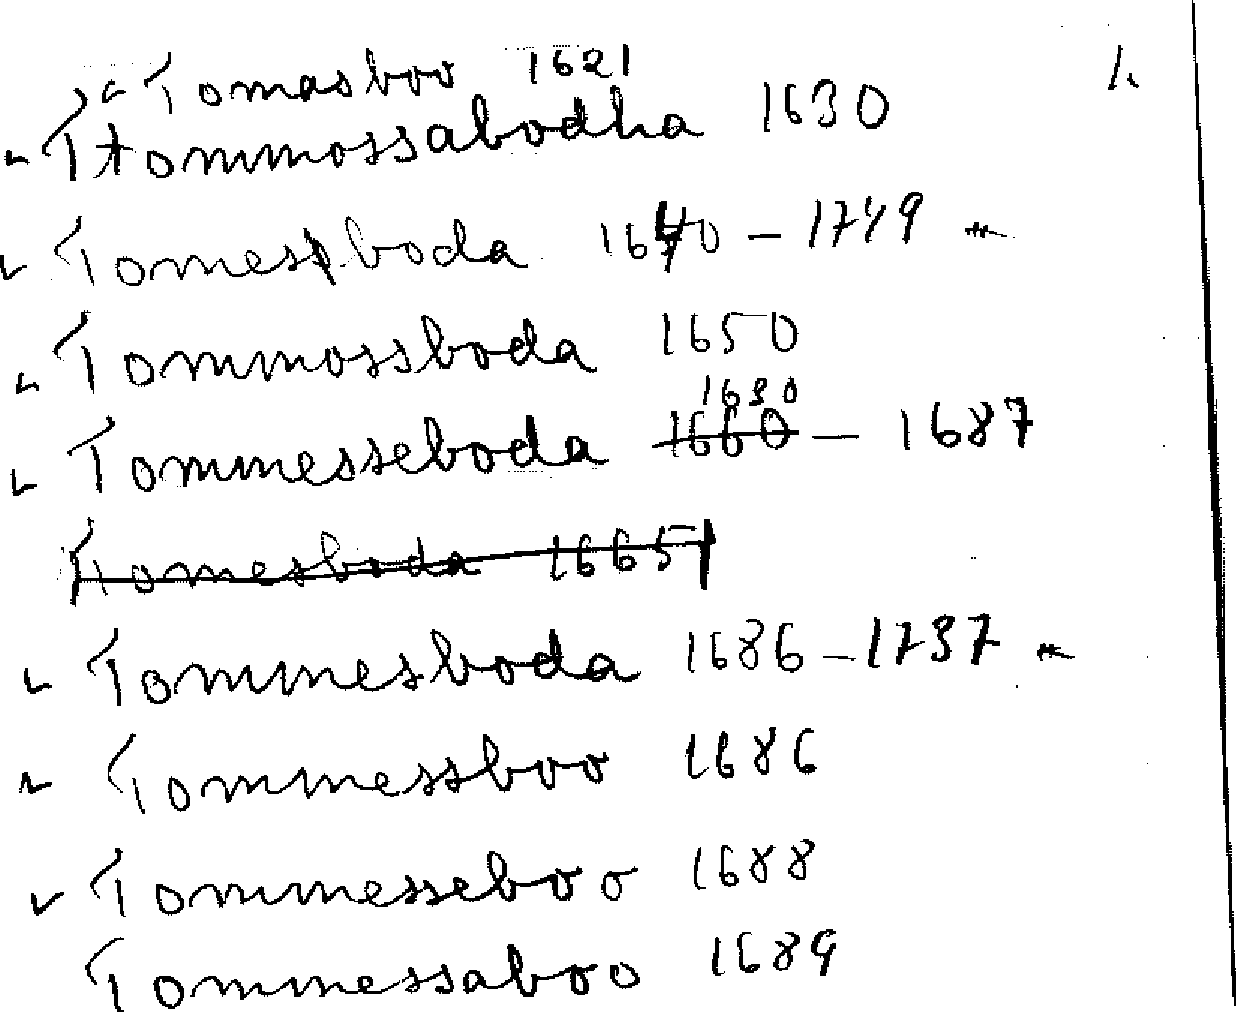 Tomasboo 1621
1.
Thommossabodha 1630
Tomesboda 1640 - 1749
Tommossboda 1650
1680
Tommesseboda 1660 - 1687
Tomesboda 1665
Tommesboda 1686 - 1737
Tommessboo 1686
Tommesseboo 1688
Tommessaboo 1689